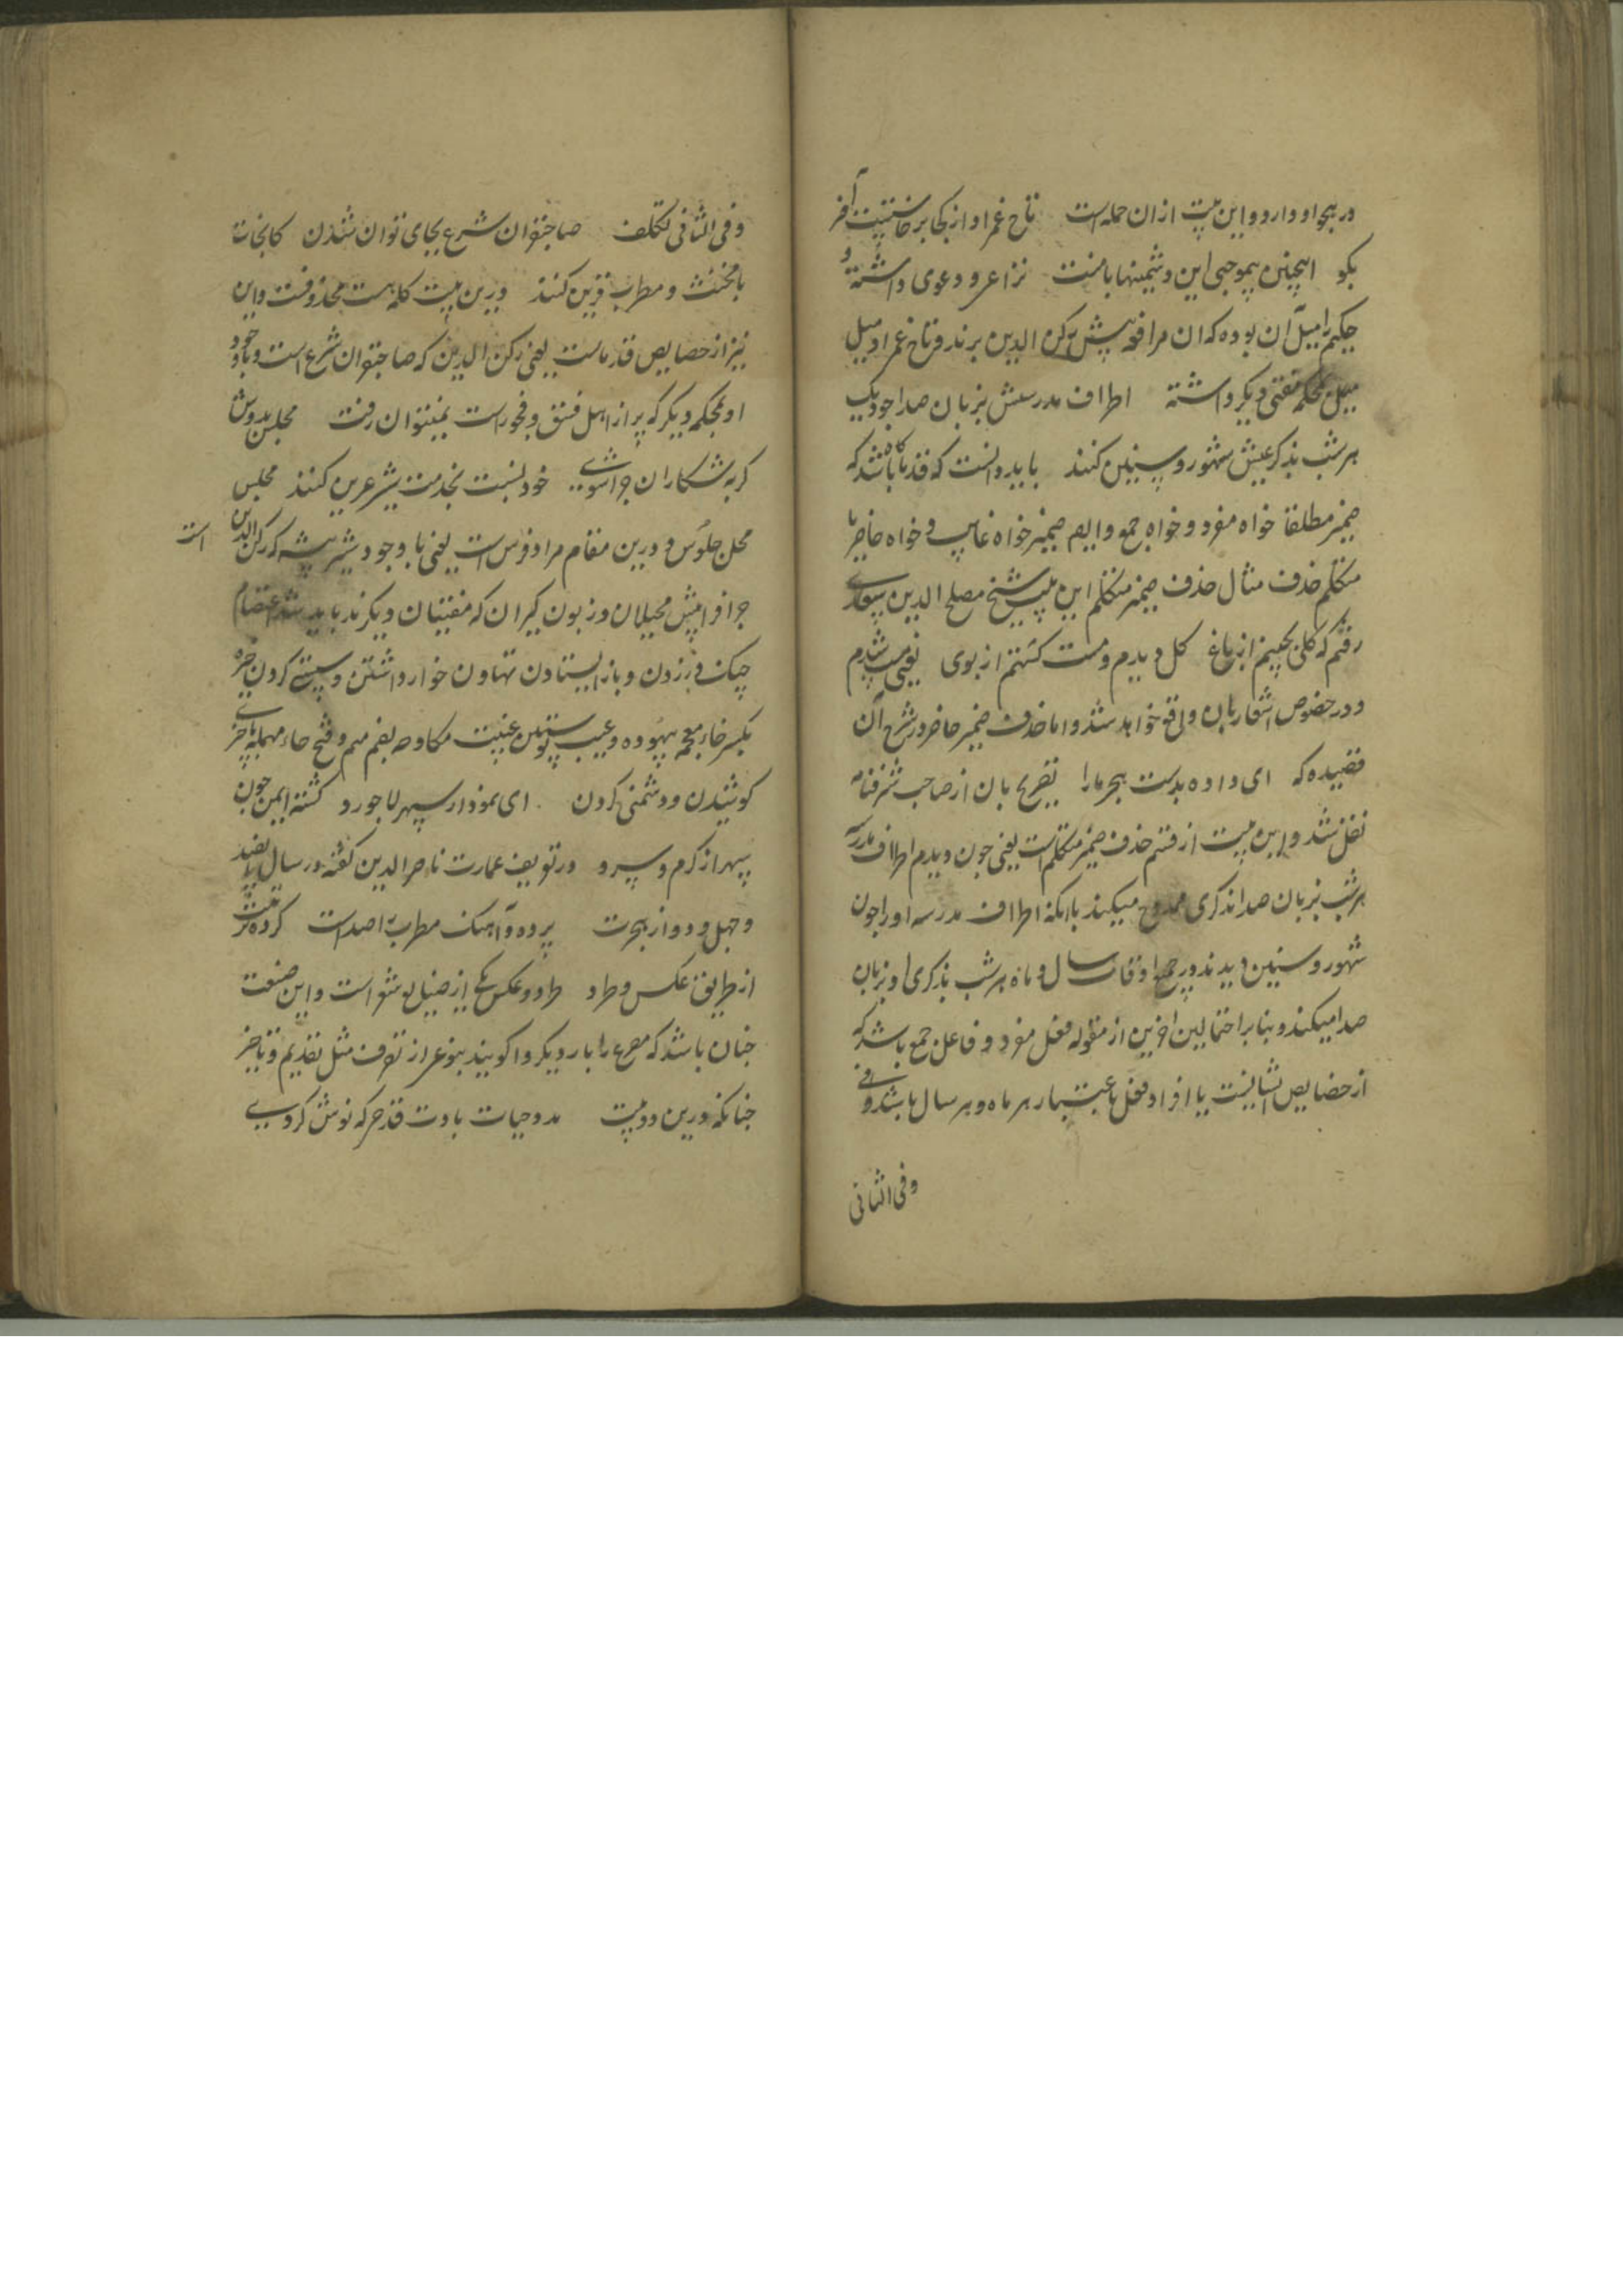 در هجو او دارد و این بیت از ان جمله است تاج غمزاد از کجا برخاستیت آخر
بکو اینچنین بیموجبی این دشمنیها با منت نزاعی و دعوی داشته و
حکیم را میل آن بوده که ان مرافعه پیش رکن الدین برند و تاج غمزاد میل
میل محکمه مفتی دیکر داشته اطراف مدرسش بزبان صدا جو دیک
هر شب بذکر عیش شهور و سنین کنند باید دانست که قدما کاه باشد که
ضمیر مطلقا خواه مفرد و خواه جمع و ایضا ضمیر خواه غایب و خواه حاضر یا
متکلم حذف مثال حذف ضمیر متکلم این بیت شیخ مصلح الدین سعدی
رفتم که کلی بچینم از باغ کل دیدم و مست کشتم از بوی یعنی مست شدم
و در خصوص اشعار بان واقع خواهد شد و اما حذف ضمیر حاضر در شرح آن
قصیده که ای داده بدست هجر ما را تصریح بان از صاحب شرفنامه
نقل شد و این بیت از قسم حذف ضمیر متکلم است یعنی چون دیدم اطراف مدرسه
هر شب بزبان صدا ذکری ممدوح میکند با انکه اطراف مدرسه او را جون
شهور و سنین دیدند در جمیع اوقات سال و ماه هر شب بذکری او بزبان
صدا میکند و بنابر احتمالین اخرین از مقوله فعل مفرد و فاعل جمع باشد که
از خصایص ایشانست یا افراد فعل باعتبار هر ماه و هر سال باشد وفی
وفی الثانی
وفی الثانی تکلف صاحبقران شرع بجای توان شدن کانجات
با مخنث و مطرب قرین کنند درین بیت کلمه هست محذوفست و این
نیز از خصایص قدماست یعنی رکن الدین که صاحبقران شرع است و با وجود
او بمحکمه دیکر که پر از اهل فسق و فجور است نمیتوان رفت مجلس بدوش
کربه شکاران چرا شوی خود نسبت بخدمت شیر عرین کنند مجلس
محل جلوس و درین مقام مراد فرس است یعنی با وجود شیر بیشه که رکن الدین است
چرا فرا پیش محیلان و زبون کیران که مفتیان دیکرند باید شد اعتصام
چنک در زدن و باز ایستادن تهاون خوار داشتن و سستی کردن خیره
بکسر خاء معجمه بیهوده و عیب پوستین غیبت مکاوحه بضم میم و فتح حاء مهمله با چیزی
کوشیدن و دشمنی کردن ای نمودار سپهر لاجورد کشته ایمن چون
سپهر از کرم و سرد در تعریف عمارت ناصر الدین کفته در سال پانصد
و چهل و دو از هجرت پرده و آهنک مطرب را صداست کرده ترتیبش
از طریق عکس و طرد طرد و عکس یکی از صنایع شعر است و این صنعت
چنان باشد که مصرع را بار دیکر واکویند بنوعی از تصرف مثل تقدیم و تاخیر
چنانکه درین دو بیت مدد حیات بادت قدحی که نوش کردی